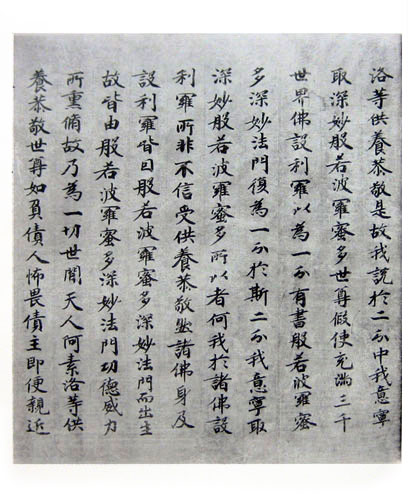 洛等供養恭敬是故我說於二分中我意寧
取深妙般若波羅蜜多世尊假使充滿三千
世界佛設利羅以為一分有書般若波羅蜜
多深妙法門復為一分於斯二分我意寧取
深妙般若波羅蜜多所以者何我於諸佛設
利羅所非不信受供養恭敬然諸佛身及
設利羅皆因般若波羅蜜多深妙法門而出生
故皆由般若波羅蜜多深妙法門功德威力
所熏脩故乃為一切世間天人阿素洛等供
養恭敬世尊如負債人怖畏債主即便親近